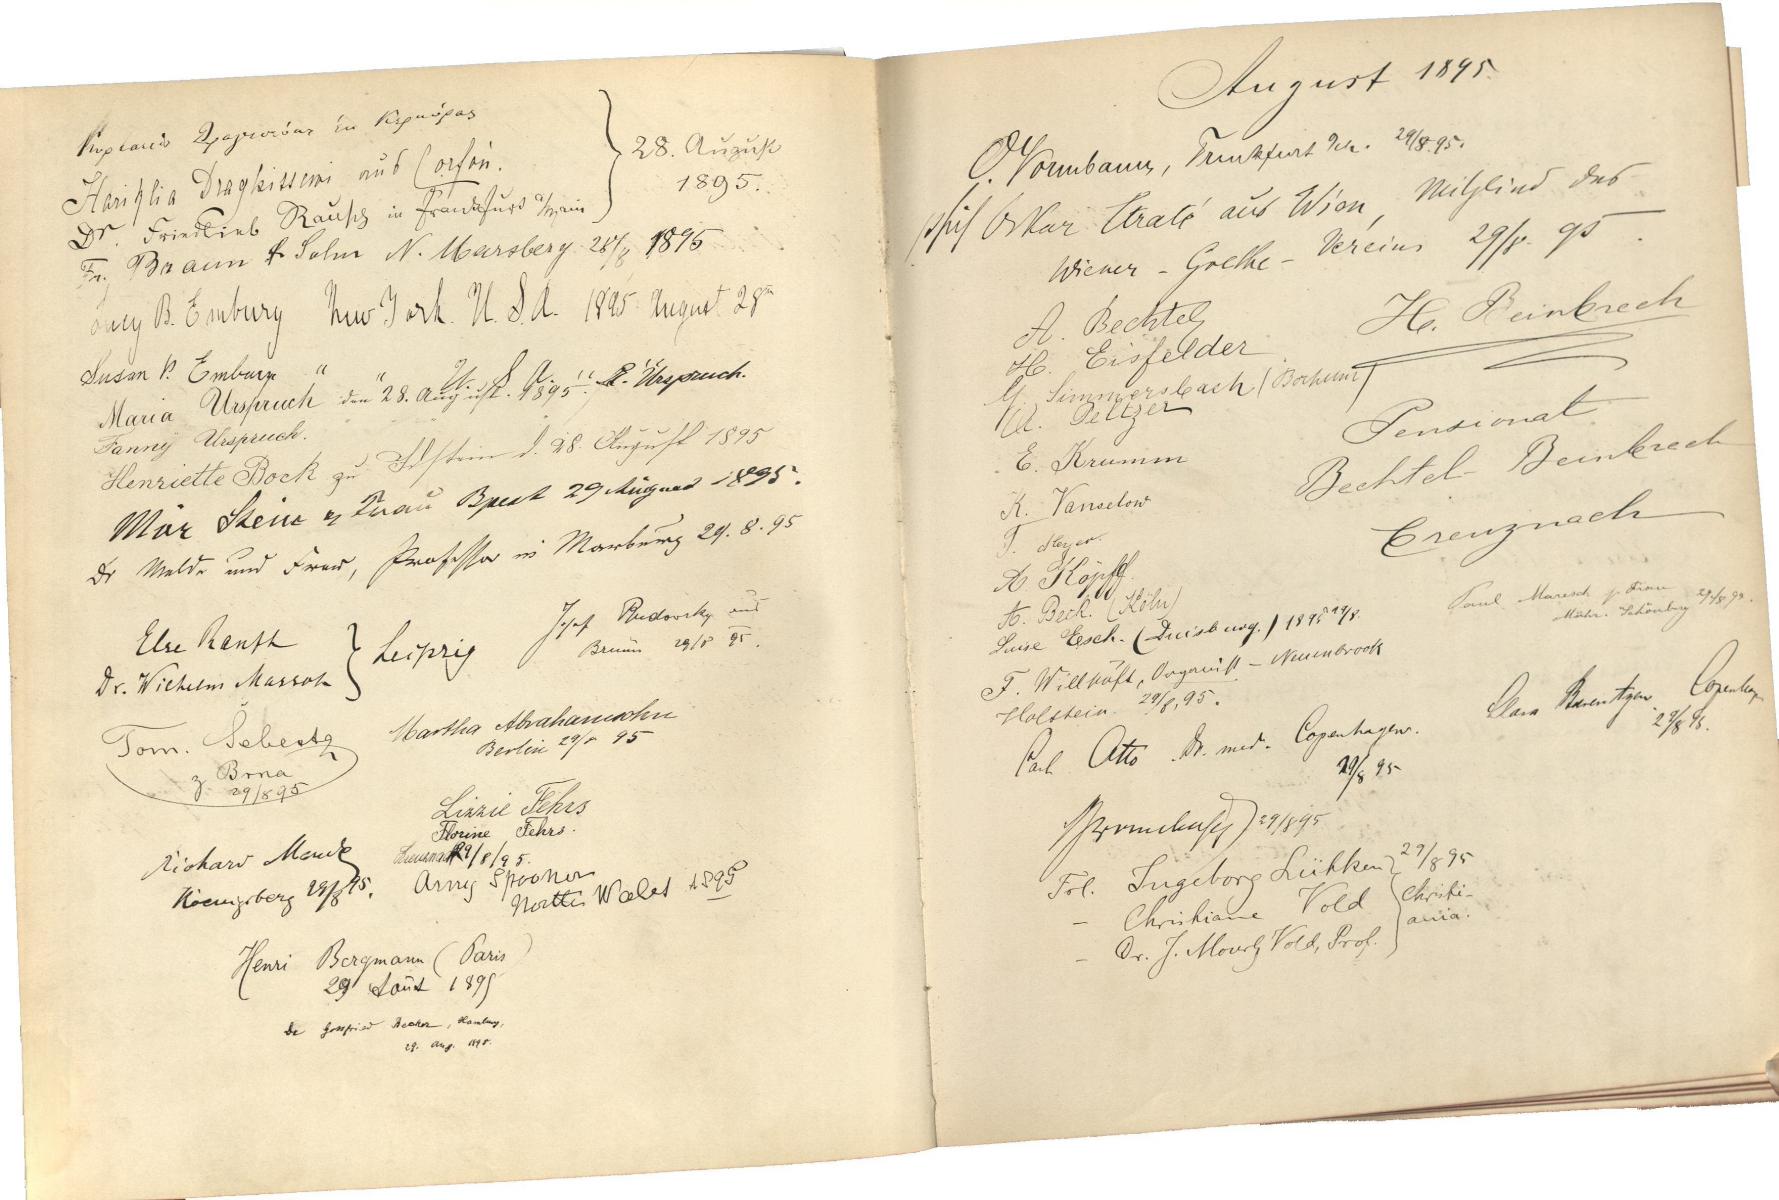 ἐκ Κερκύρας
Hariklia aus Corfou.
Dr. Friedlieb Rausch in Frankfurt a/Main
28. August
1895.
Fr. Braun & Sohn N. Marsberg 28/8 1895
B. Embury New York. U. S. A. 1895 August 28th
Susan P. Embury " " U. S. A. "
Maria Urspruch den 28. August. 1895. A. Urspruch.
Fanny Urspruch.
Henriette Bock zu Idstein d. 28. August 1895
Mór Stein & Frau Bpest 29 August 1895.
Dr Melde und Frau, Professor in Marburg 29. 8. 95
Else Ranft
Dr. Wilhelm
Leipzig
Josef aus
Brünn 29/8 95.
Tom. Šebesta
z Brna
29/8 95
Martha Abrahamsohn
Berlin 29/8 95
Lizzie Fehrs
Florine Fehrs.
29/8/95.
Richard
Koenigsberg 29/8 95.
Amy Spooner
North Wales 1895
Henri Bergmann (Paris)
29 Août 1895
Dr Gottfried Becker, Hamburg,
29. Aug. 1895.
August 1895.
O. Vormbaum, Frankfurt 29/8.95.
Oskar aus Wien, Mitglied des
Wiener - Goethe - Vereins 29/8. 95.
A. Bechtel
H. Eisfelder
Simmersbach (Bochum)
Peltzer
E. Krumm
K. Vanselow
Meyer.
A Köpff.
A. Beck. (Köln)
Luise Esch. (Duisburg.) 1895 29/8.
H. Beinbrech
Pensionat
Bechtel-Beinbrech
Creuznach
Paul Maresch
Mähr. Schönberg 29/8 95.
F. Willhöft, Organist - Neuenbrook
Holstein. 29/8.95.
Carl Otto Dr. med. Copenhagen.
29/8 95
Clara Copenhagen
29/8 95.
29/8 95
Frl. Ingeborg Lühken 29/8 95
- Christiane Vold
- Dr. J. Mourly Vold, Prof.
Christi-
ania.